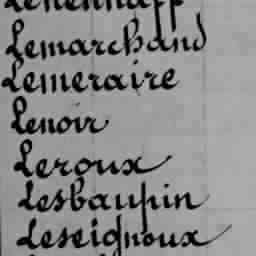 Lemarchand
Lemeraire
Lenoir
Leroux
Lesbaupin
Leseignoux